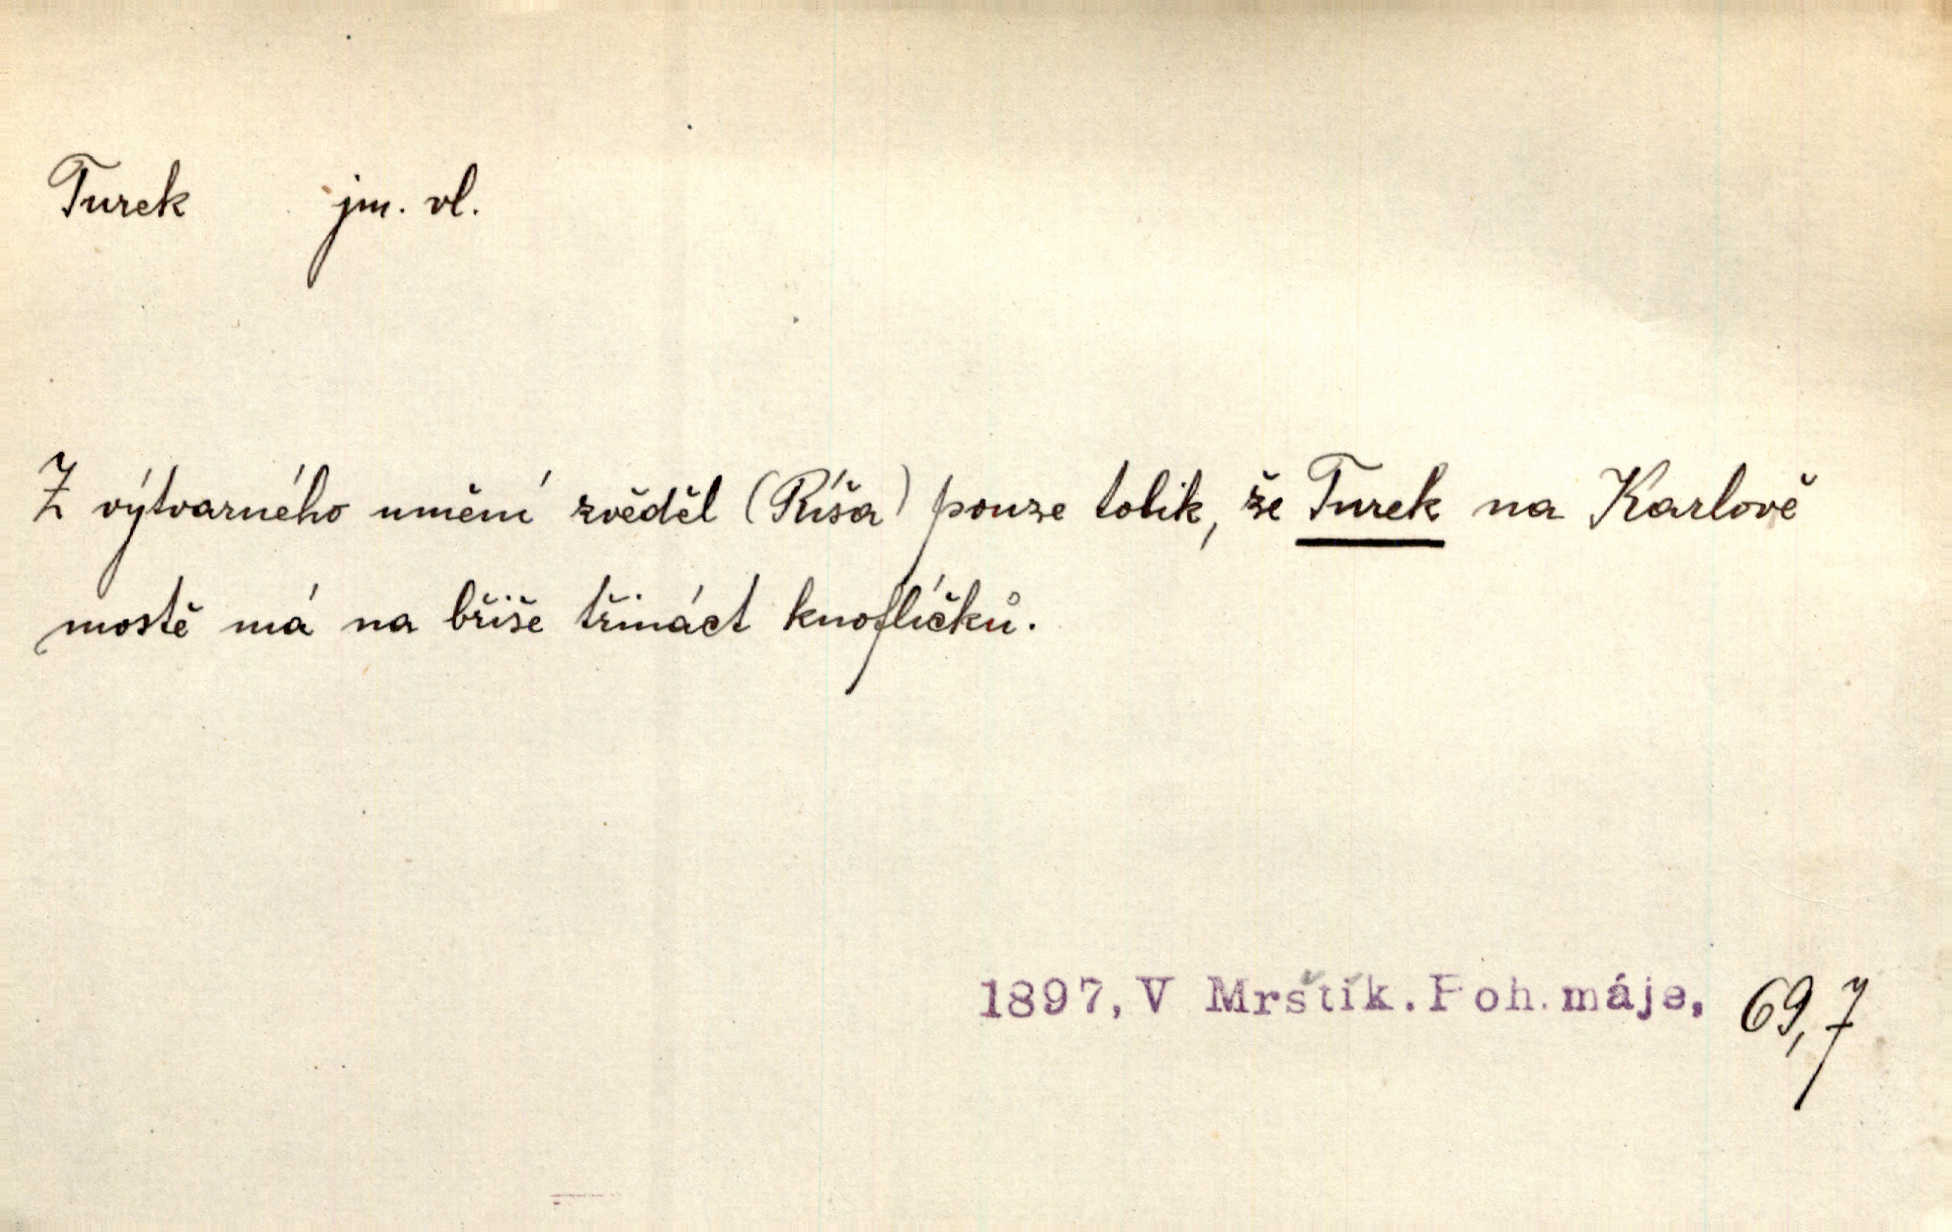 Turek jm. vl.
Z výtvarného umění zvěděl (Ríša) pouze tolik, že Turek na Karlově
mostě má na břiše třináct knoflíčků.
1897, V Mrštík. Poh. máje, 69,7